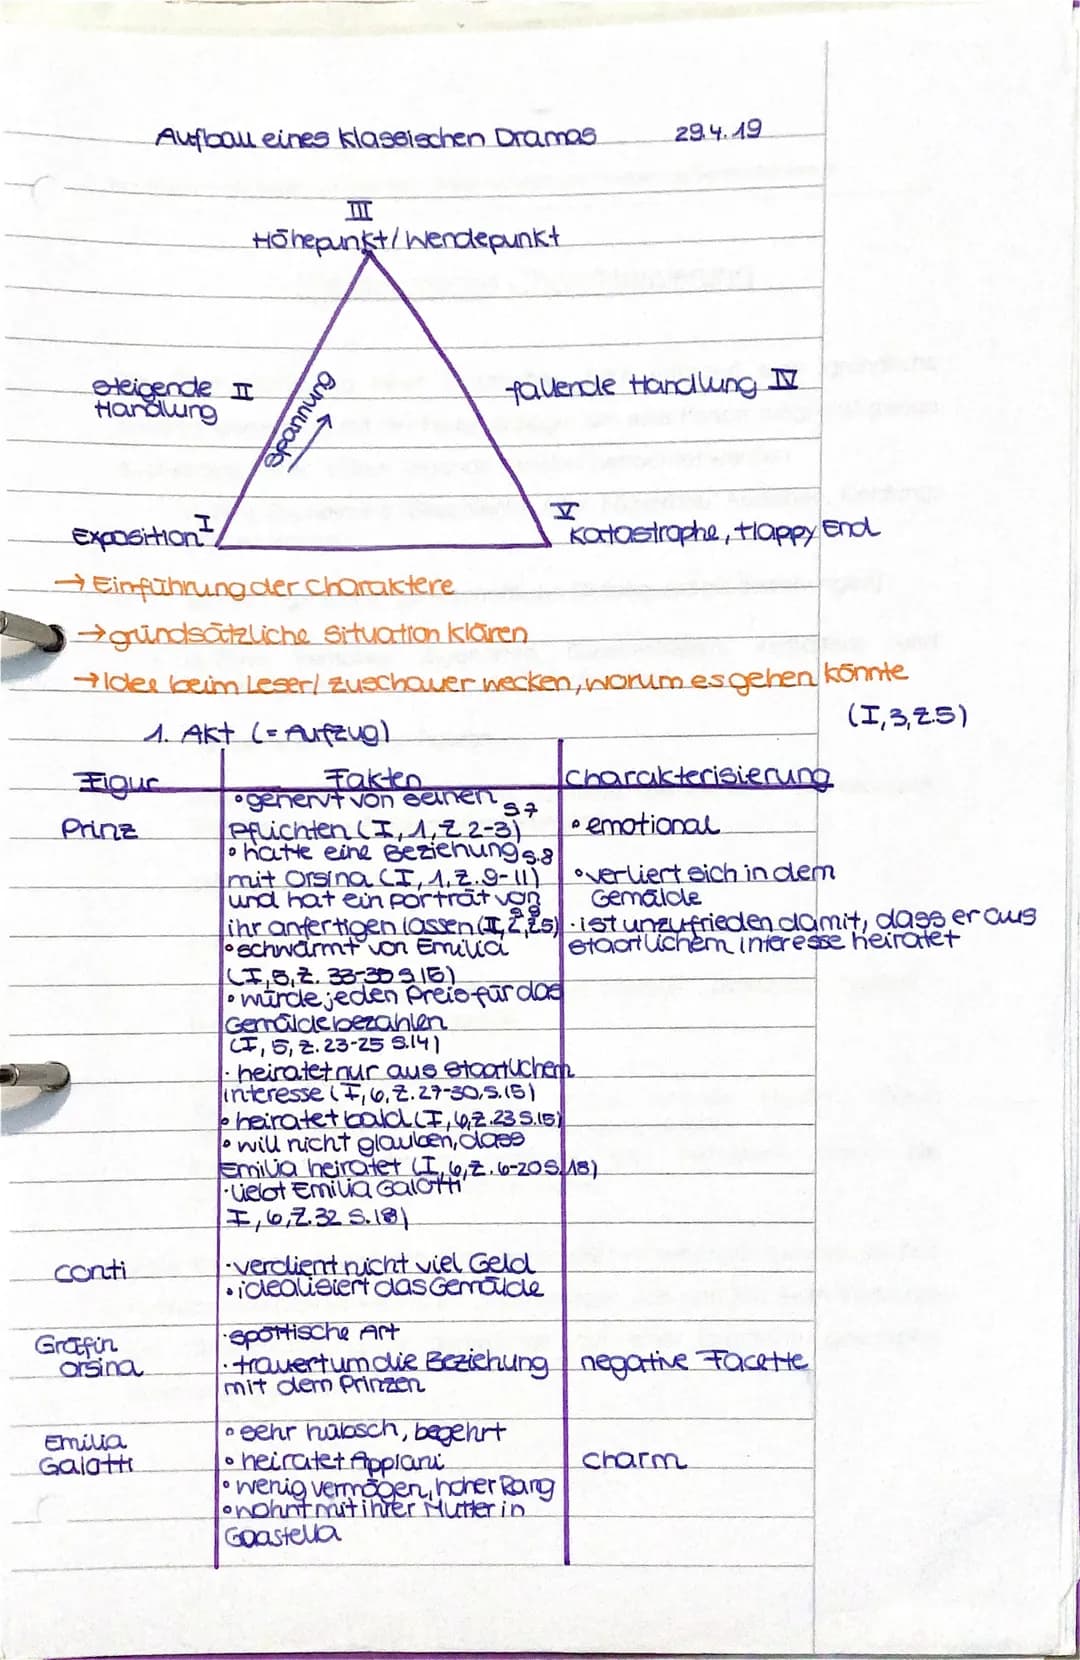 Aufbau eines klassischen Dramas 29.4.19
III
Höhepunkt/Wendepunkt
steigende II
Handlung
Spannung
fallende Handlung IV
Exposition I
V
Katastrophe, Happy End
→ Einführung der Charaktere
→ grundsätzliche Situation klären
→ Idee beim Leser/Zuschauer wecken, worum es gehen könnte
(I,3,Z.5)
1. Akt (= Aufzug)
Figur Fakten Charakterisierung
Prinz
• genervt von seinen S7
Pflichten (I,1,Z 2-3)
• hatte eine Beziehung S.8
mit Orsina (I,1,Z.9-11)
und hat ein porträt von
ihr anfertigen lassen
• schwärmt von Emilia
(I,5,Z. 33-38 S.15)
• würde jeden Preis für das
Gemälde bezahlen
(I,5,Z.23-25 S.14)
· heiratet nur aus staatlichem
interesse (I,6,Z.27-30,S.15)
• heiratet bald (I,6,Z.23 S.15)
• will nicht glauben, dass
Emilia heiratet (I,6,Z.6-20 S.18)
· liebt Emilia Galotti
I,6,Z.32 S.18)
• emotional
• verliert sich in dem
Gemälde
· ist unzufrieden damit, dass er aus
staatlichem interesse heiratet
Conti
· verdient nicht viel Geld
• idealisiert das Gemälde
Gräfin
Orsina
· spöttische Art
· trauert um die Beziehung
mit dem Prinzen
negative Facette
Emilia
Galotti
• sehr hübsch, begehrt
• heiratet Appiani
• wenig vermögen, hoher Rang
• wohnt mit ihrer Mutter in
Gaastella
Charm